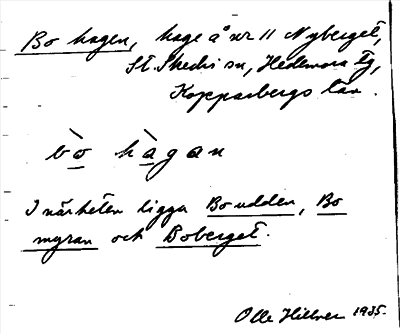 Bo hagen, hage å nr 11 Nyberget,
St. Skedvi sn, Hedemora tg,
Kopparbergs län.
bò hàgan
I närheten ligga Boudden, Bo
myran och Boberget.
Olle Hillner 1935.